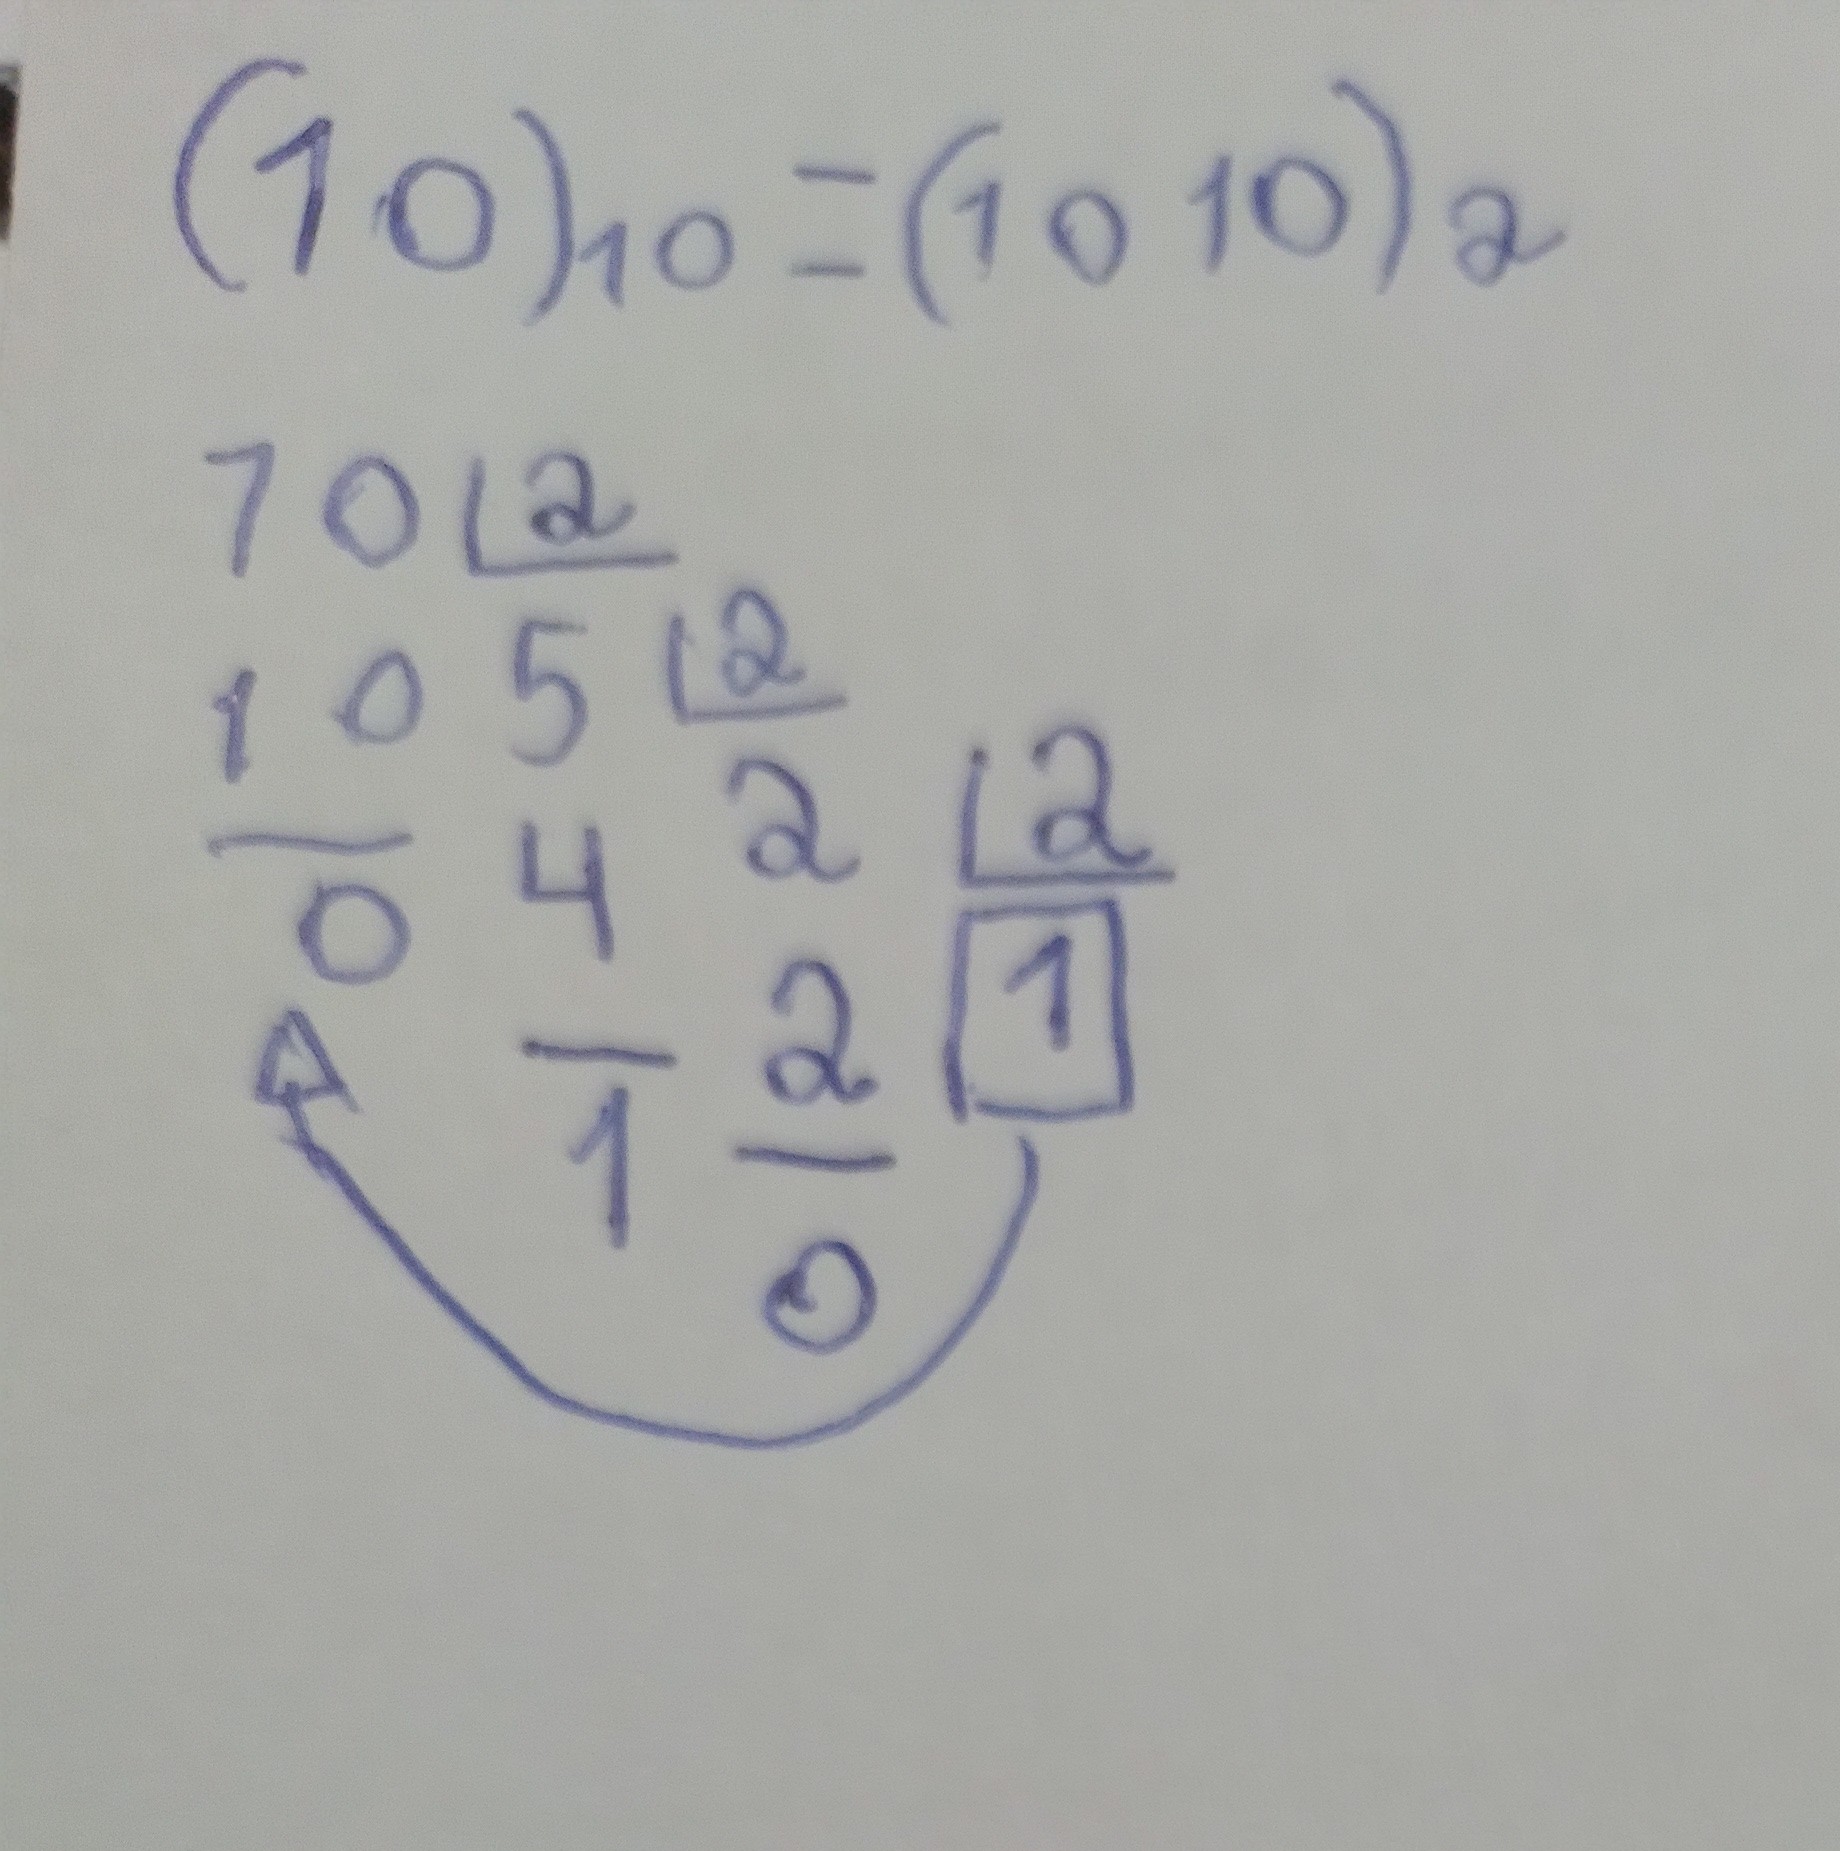 (10)10 = (1010)2
10 2
10 5 2
0 4 2 2
1 2 1
0